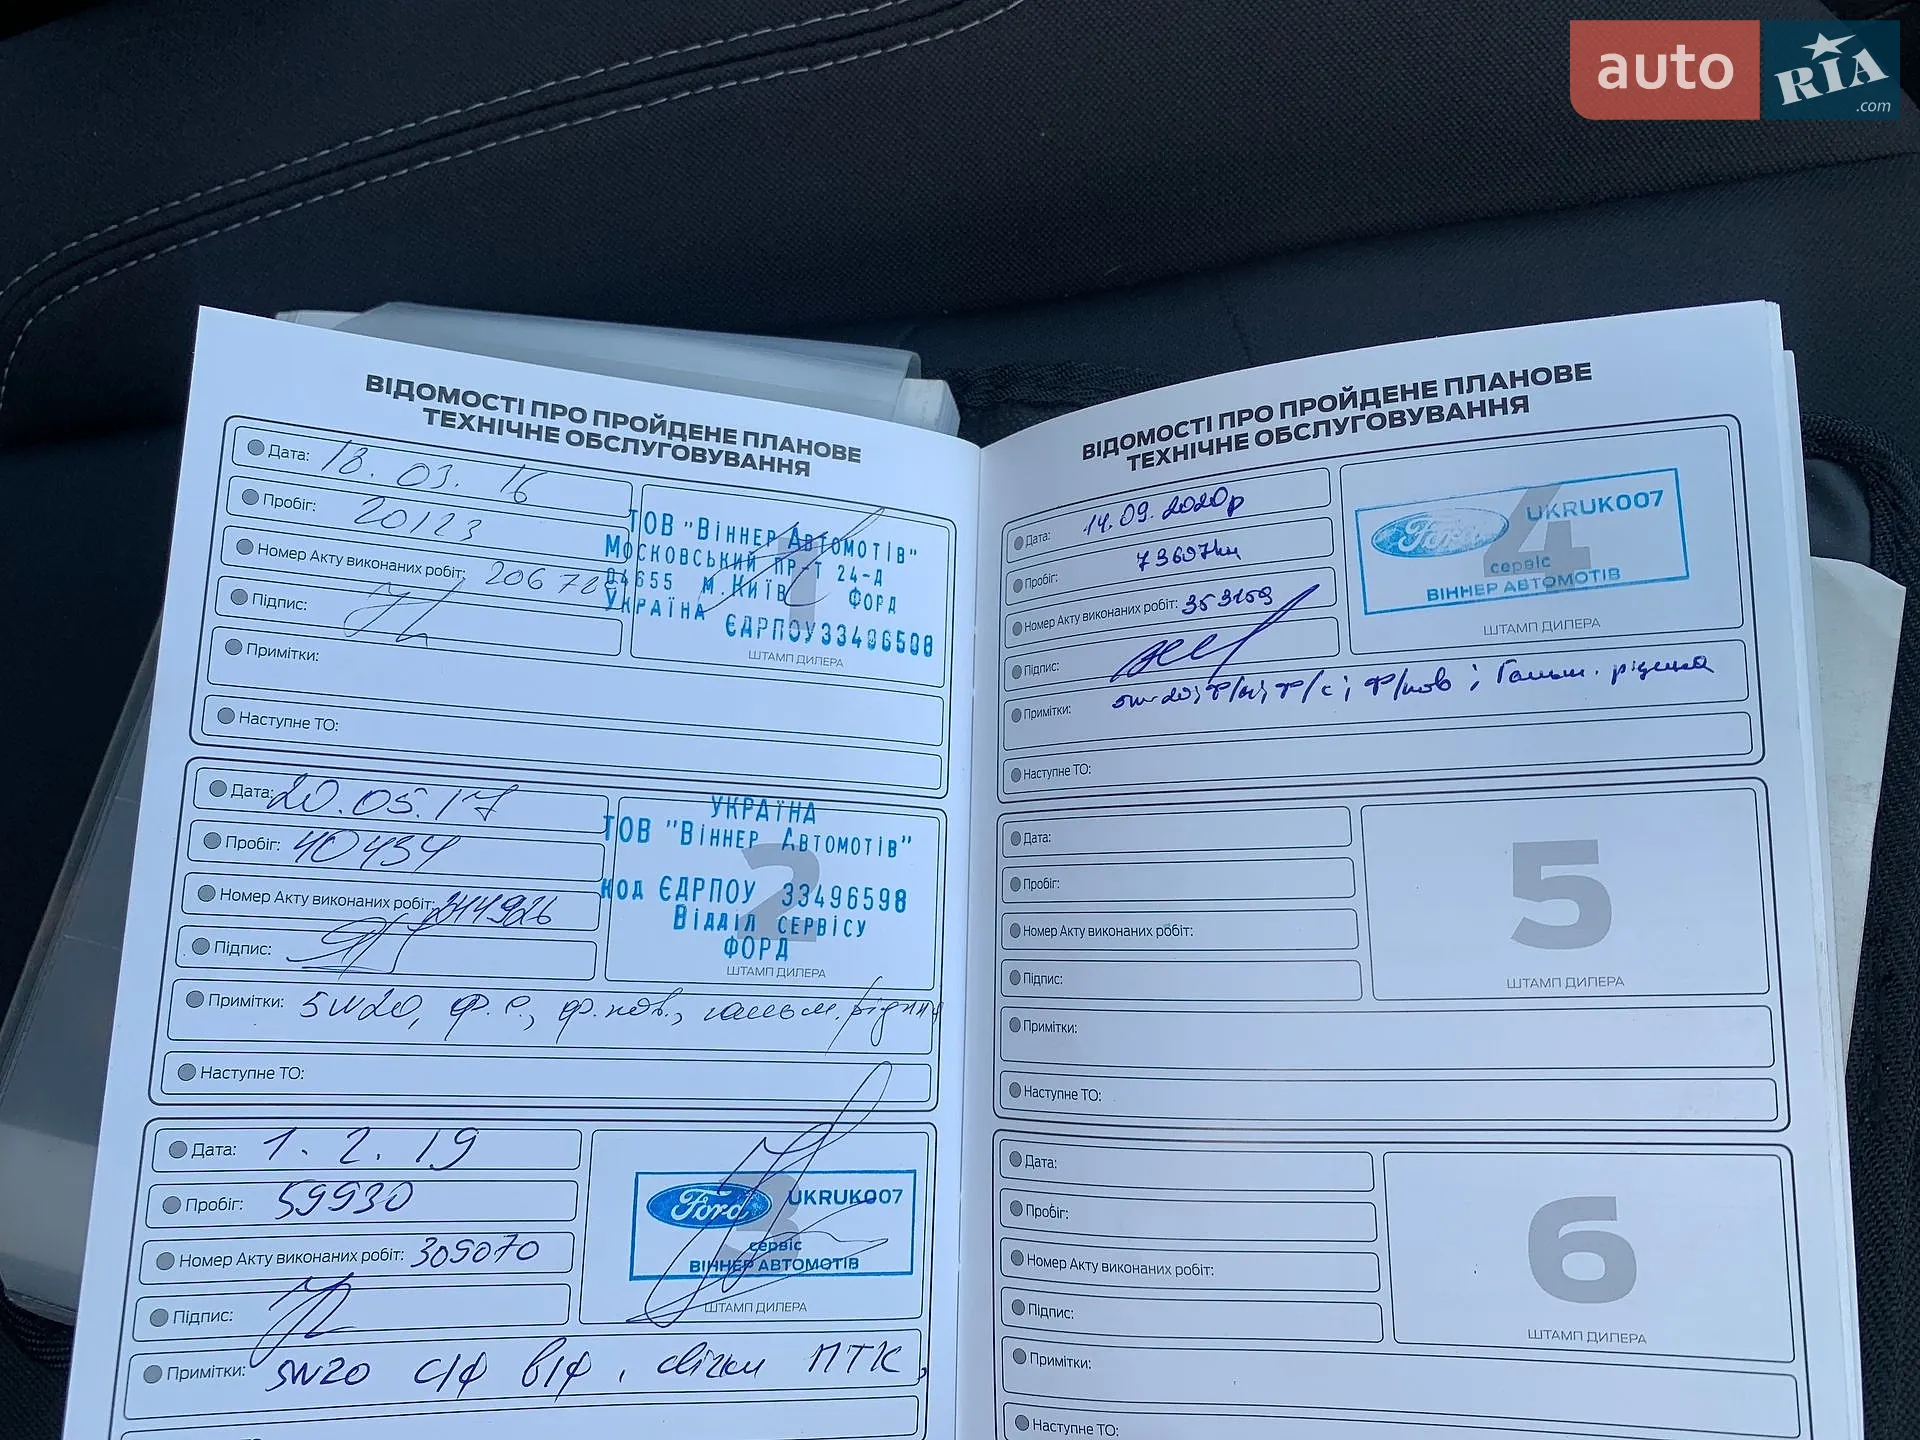 auto RIA .com
ВІДОМОСТІ ПРО ПРОЙДЕНЕ ПЛАНОВЕ
ТЕХНІЧНЕ ОБСЛУГОВУВАННЯ
Дата: 18.03.16
Пробіг: 20123
Номер Акту виконаних робіт:
Підпис:
Примітки:
Наступне ТО:
ТОВ "Віннер Автомотів"
Московський пр-т 24-Д
04655 м.Київ Форд
Україна ЄДРПОУ33496508
1
ШТАМП ДИЛЕРА
Дата: 20.05.17
Пробіг: 40434
Номер Акту виконаних робіт: 244926
Підпис:
Примітки: 5W20, ф.с., ф.пов., гальм. рідина
Наступне ТО:
УКРАЇНА
ТОВ "Віннер Автомотів"
код ЄДРПОУ 33496598
Відділ сервісу
ФОРД
2
ШТАМП ДИЛЕРА
Дата: 1.2.19
Пробіг: 59930
Номер Акту виконаних робіт: 305070
Підпис:
Примітки: 5W20 с/ф в/ф, свічки ПТК,
Ford UKRUK007
сервіс
ВІННЕР АВТОМОТІВ
3
ШТАМП ДИЛЕРА
ВІДОМОСТІ ПРО ПРОЙДЕНЕ ПЛАНОВЕ
ТЕХНІЧНЕ ОБСЛУГОВУВАННЯ
Дата: 14.09.2020р
Пробіг: 73697км
Номер Акту виконаних робіт: 353159
Підпис:
Примітки: 5w-20; ф/м; ф/с; ф/пов; Гальм. рідина
Наступне ТО:
Ford UKRUK007
сервіс
ВІННЕР АВТОМОТІВ
4
ШТАМП ДИЛЕРА
Дата:
Пробіг:
Номер Акту виконаних робіт:
Підпис:
Примітки:
Наступне ТО:
5
ШТАМП ДИЛЕРА
Дата:
Пробіг:
Номер Акту виконаних робіт:
Підпис:
Примітки:
Наступне ТО:
6
ШТАМП ДИЛЕРА